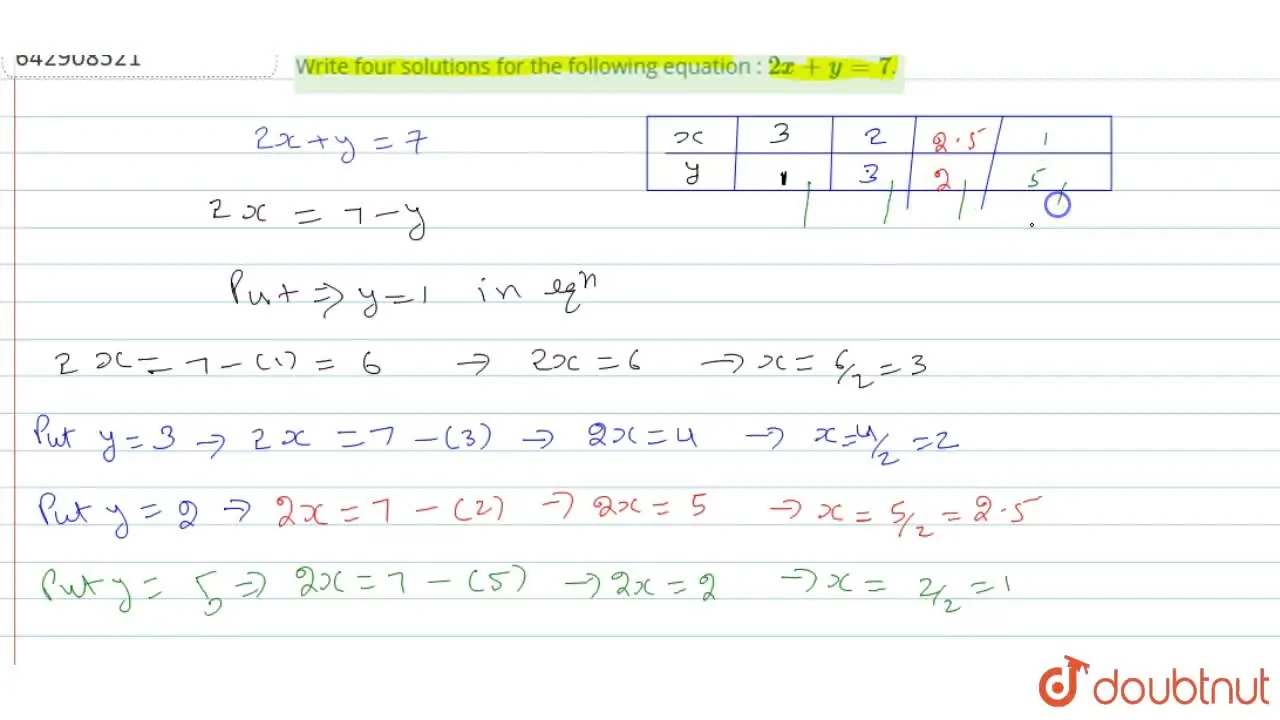 642908521
Write four solutions for the following equation : 2x + y = 7.
2x+y = 7
x 3 2 2.5 1
y 1 3 2 5
2x = 7-y
Put ⇒ y=1 in eqn
2x = 7-(1) = 6 → 2x = 6 → x = 6/2 = 3
Put y = 3 → 2x = 7-(3) → 2x = 4 → x = 4/2 = 2
Put y = 2 → 2x = 7-(2) → 2x = 5 → x = 5/2 = 2.5
Put y = 5 ⇒ 2x = 7-(5) → 2x = 2 → x = 2/2 = 1
doubtnut